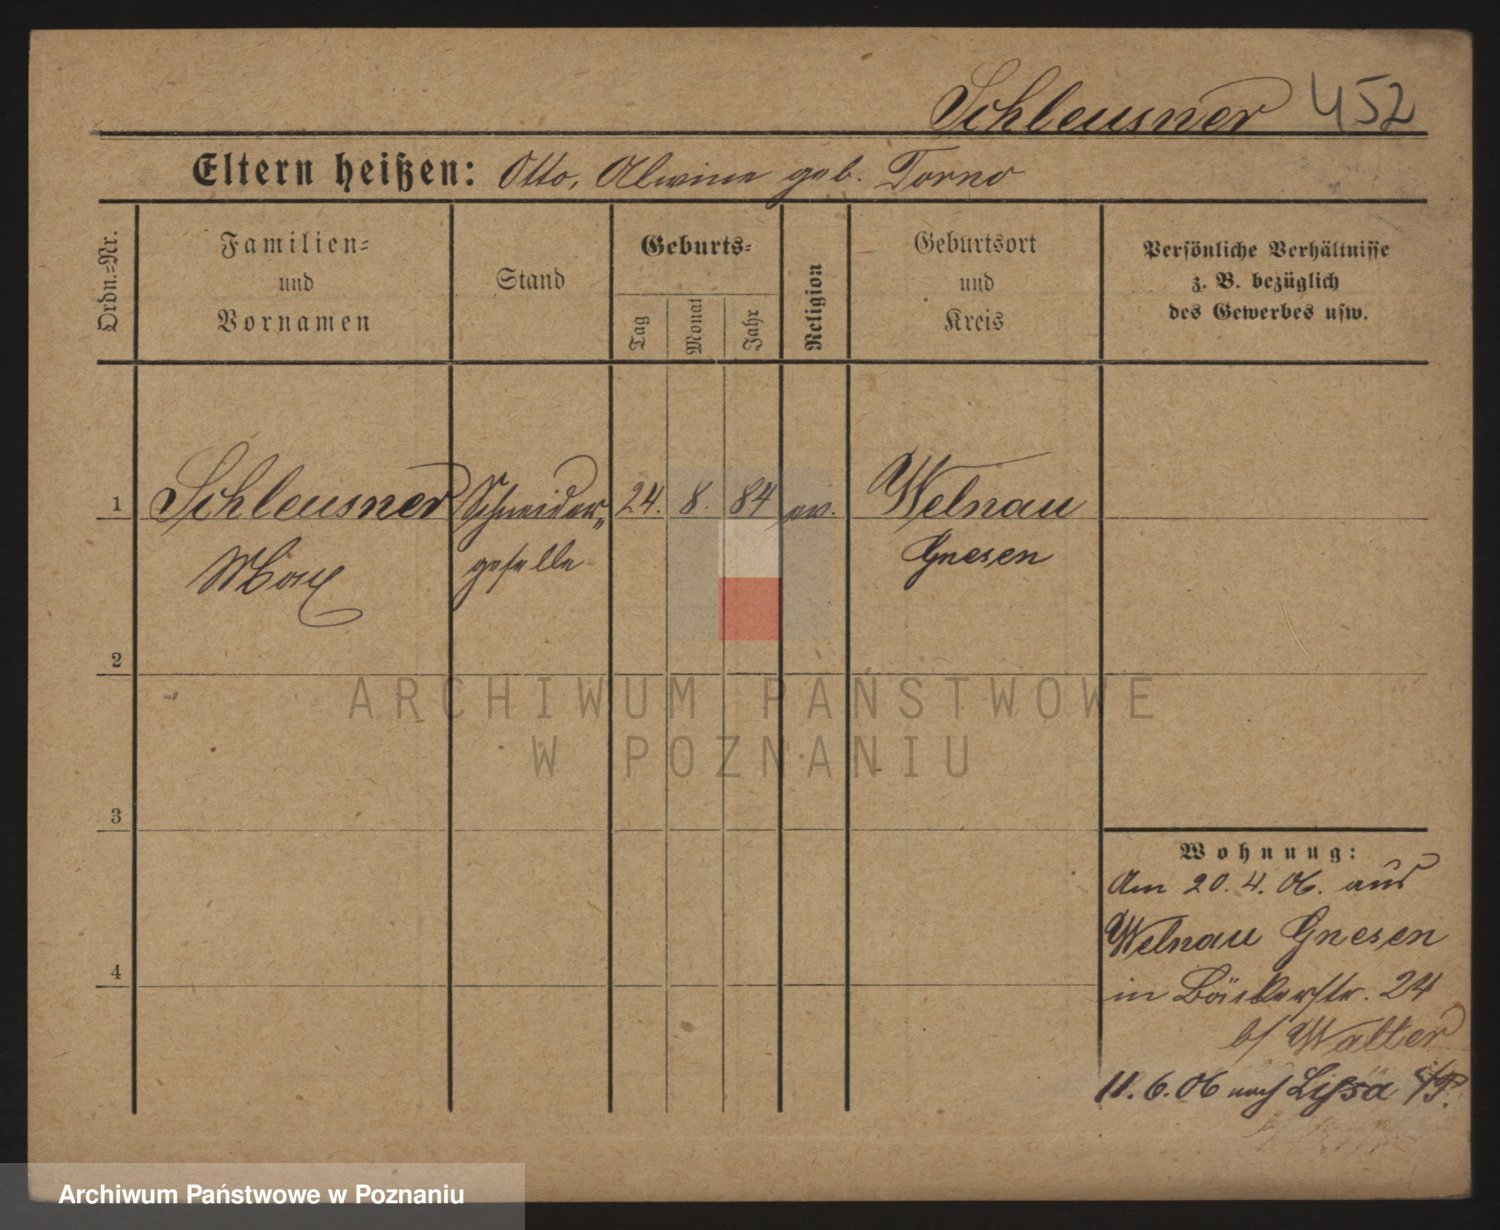 Schleusner 452
Eltern heißen: Otto, Alwine geb. Torno
Ordn.=Nr.
Familien=
und
Vornamen
Stand
Geburts=
Tag
Monat
Jahr
Religion
Geburtsort
und
Kreis
Persönliche Verhältnisse
z. B. bezüglich
des Gewerbes usw.
1 Schleusner Schneider= 24. 8. 84 ev. Welnau
Max geselle Gnesen
2
3
4
Wohnung:
Am 20.4.06. aus
Welnau Gnesen
in Bäckerstr. 24
b/ Walter
11.6.06 nach Lissa
ARCHIWUM PAŃSTWOWE
W POZNANIU
Archiwum Państwowe w Poznaniu